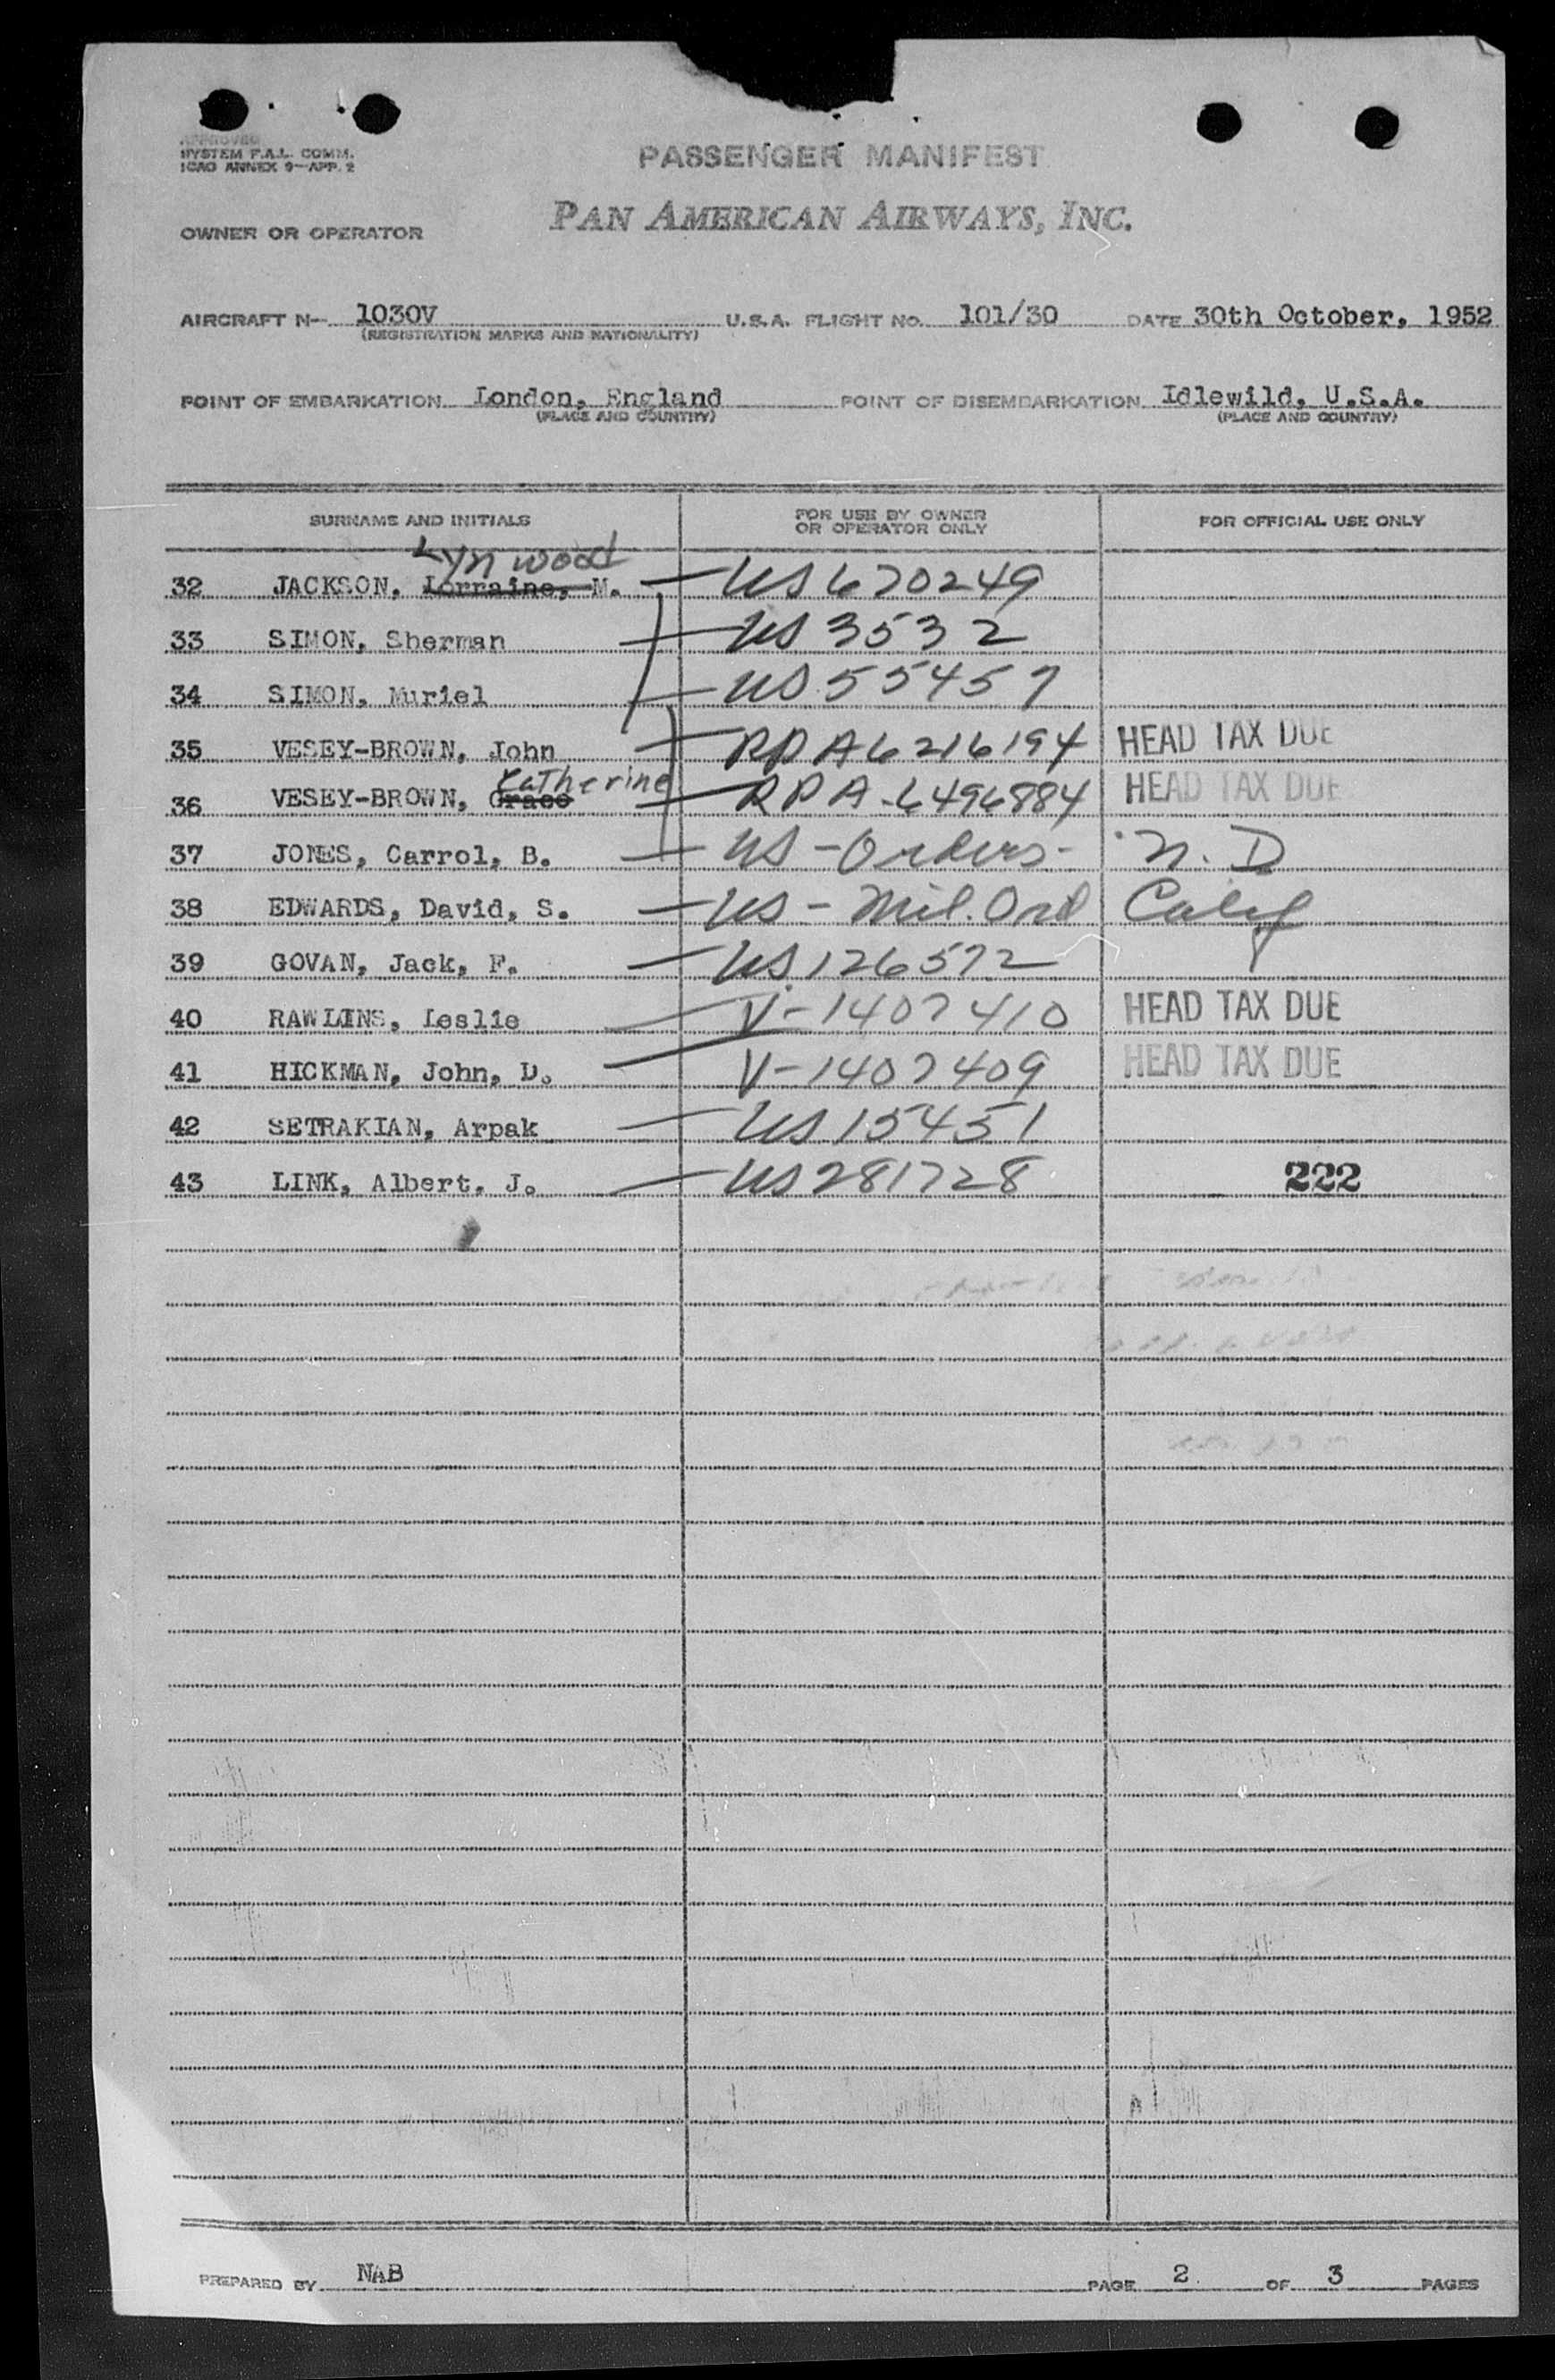 APPROVED
SYSTEM F.A.L. COMM.
ICAO ANNEX 9-APP. 2
PASSENGER MANIFEST
OWNER OR OPERATOR PAN AMERICAN AIRWAYS, INC.
AIRCRAFT N- 1030V U.S.A. FLIGHT NO. 101/30 DATE 30th October, 1952
(REGISTRATION MARKS AND NATIONALITY)
POINT OF EMBARKATION London, England POINT OF DISEMBARKATION Idlewild, U.S.A.
(PLACE AND COUNTRY) (PLACE AND COUNTRY)
SURNAME AND INITIALS FOR USE BY OWNER OR OPERATOR ONLY FOR OFFICIAL USE ONLY
Lynwood
32 JACKSON, Lorraine, M. US 670249
33 SIMON, Sherman US 3532
34 SIMON, Muriel US 55457
35 VESEY-BROWN, John RP A6216194 HEAD TAX DUE
Katherine
36 VESEY-BROWN, Grace RP A-6496884 HEAD TAX DUE
37 JONES, Carrol, B. US - Orders - N. D
38 EDWARDS, David, S. US - Mil. Ord Calif
39 GOVAN, Jack, F. US 126572
40 RAWLINS, Leslie V-1407410 HEAD TAX DUE
41 HICKMAN, John, D. V-1407409 HEAD TAX DUE
42 SETRAKIAN, Arpak US 15451
43 LINK, Albert, J. US 281728 222
PREPARED BY NAB PAGE 2 OF 3 PAGES